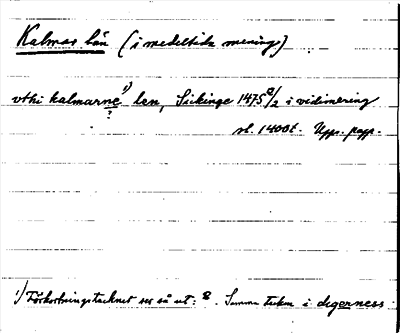 Kalmar län (i medeltida mening)
vthi kalmarne 1) len, Sickinge 1475 2/2 i vidimering
?
sl. 1400t. Upps. papp.
1) Förkortningstecknet ser så ut: . Samma tecken i degerness